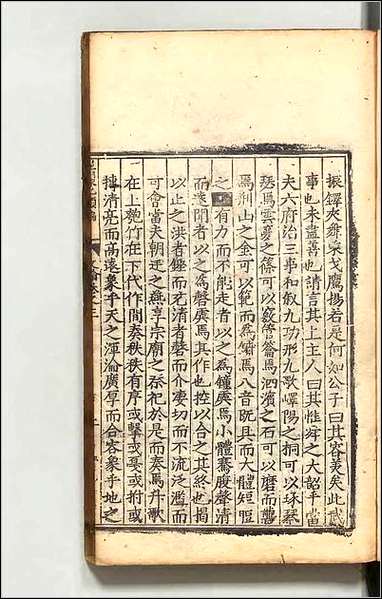 振鐸夾舞乘戈鷹揚若是何如公子曰其容美矣此武
事也未盡善也請言其上主人曰其惟舜之大韶乎當
夫六府治三事和叙九功形九歌嶧陽之桐可以琢琴
瑟焉雲夢之篠可以簫管籥焉泗濱之石可以磨而礱
焉荊山之金可以範而鏞焉八音旣具而大體短脰
之 有力而不能走者以之為鐘虡焉小體騫腹聲清
而遠聞者以之為磬虡焉其作也控以合之其終也揭
以止之洪者鏗而充清者磬而介褭切而不流泛濫而
可會當夫朝廷之燕享宗廟之祭祀於是而奏焉升歌
在上匏竹在下代作間奏秩秩有序或擊或戛或拊或
摶清亮而高遠象乎天之渾淪廣厚而合容象乎地之